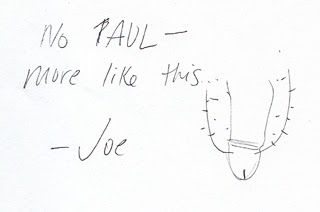 No PAUL —
more like this...
— Joe